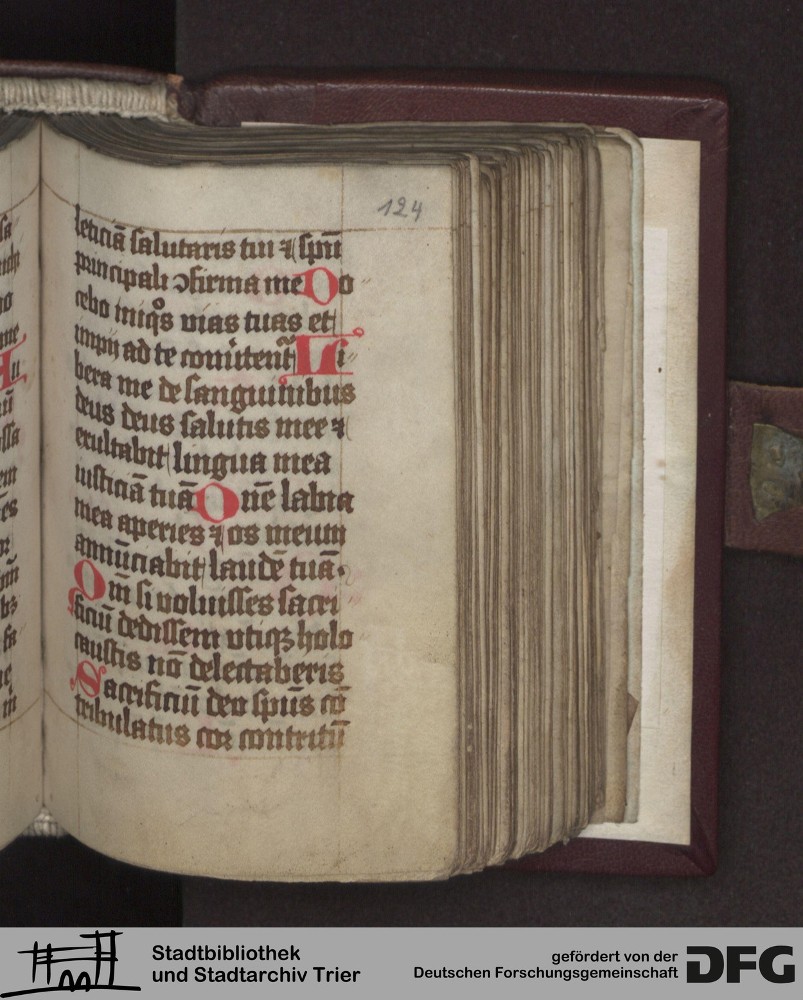 124
leticiã salutaris tui ⁊ spũ
principali ↄfirma me Do
cebo iniqͦs vias tuas et
impij ad te conũtent᷑ Li
bera me de sanguinibus
deus deus salutis mee ⁊
exultabit lingua mea
iusticiã tuã Dñe labia
mea aperies ⁊ os meum
annũciabit laudẽ tuã.
Qm̃ si voluisses sacri
ficiũ dedissem vtiqꝫ holo
caustis nõ delectaberis
Sacrificiũ deo spũs cõ
tribulatus cor contritũ
Stadtbibliothek
und Stadtarchiv Trier
gefördert von der
Deutschen Forschungsgemeinschaft
DFG